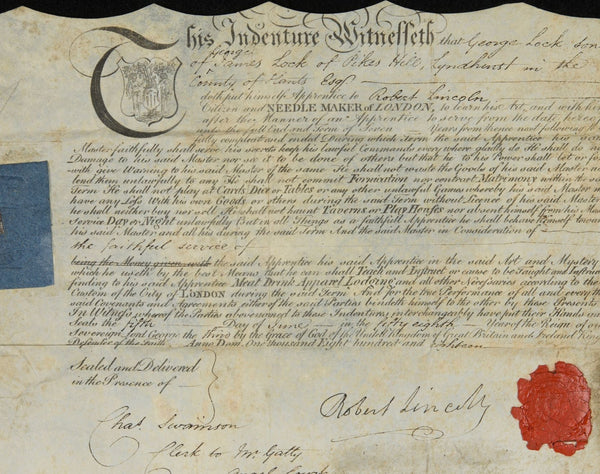 This Indenture Witnesseth that George Lock, son
George
of James Lock of Pikes Hill, Lyndhurst in the
County of Hants Esqr
doth put himself Apprentice to Robert Lincoln
Citizen and NEEDLE MAKER of LONDON, to learn his Art, and with him
after the Manner of an Apprentice to serve from the date hereof
unto the full End and Term of Seven Years from thence next following
fully compleat and ended During which Term the said Apprentice his said
Master faithfully shall serve his secrets keep his lawful Commands every where gladly do He shall do no
Damage to his said Master nor see it to be done of others but that he to his Power shall Let or for
with give Warning to his said Master of the same He shall not waste the Goods of his said Master n
lend them unlawfully to any He shall not commit Fornication nor contract Matrimony within the s
Term He shall not play at Cards Dice or Tables or any other unlawful Games whereby his said Master m
have any Loss With his own Goods or others during the said Term without Licence of his said Master
he shall neither buy nor sell He shall not haunt Taverns or Play Houses nor absent himself from his Mas
Service Day or Night unlawfully But in all Things as a faithfull Apprentice he shall behave himself towards
his said Master and all his during the said Term And the said Master in Consideration of
the faithful service of
being the Money given with the said Apprentice his said Apprentice in the said Art and Mystery
which he useth by the best Means that he can shall Teach and Instruct or cause to be Taught and Instruc
finding to his said Apprentice Meat Drink Apparel Lodging and all other Necessaries according to the
Custom of the City of LONDON during the said Term And for the true Performance of all and every the
said Covenants and Agreements either of the said Parties bindeth himself to the other by these Presents
In Witness whereof the Parties abovenamed to these Indentures interchangeably have put their Hands and
Seals the fifth Day of June in the fifty eighth Year of the Reign of our
Sovereign Lord George the Third by the Grace of God of the United Kingdom of Great Britain and Ireland King
Defender of the Faith Anno Dom. One thousand Eight hundred and Eighteen
Sealed and Delivered
in the Presence of
Robert Lincoln
Chas Swainson
Clerk to Mr Gatty
Angel Court